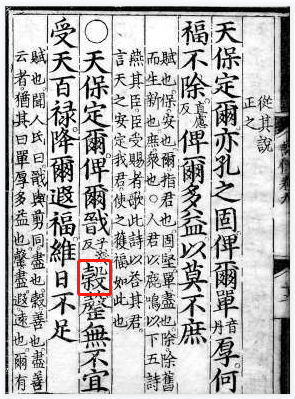 從其說
正之
天保定爾亦孔之固俾爾單音丹厚何
福不除直慮反俾爾多益以莫不庶
賦也保安也爾指君也固堅單盡也除除舊
而生新也庶衆也○人君以鹿鳴以下五詩
燕其臣臣受賜者歌此詩以答其君
言天之安定我君使之獲福如此也
○天保定爾俾爾戩子淺反穀罄無不宜
受天百禄降爾遐福維日不足
賦也聞人氏曰戩與剪同盡也穀善也盡善
云者猶其曰單厚多益也罄盡遐遠也爾有